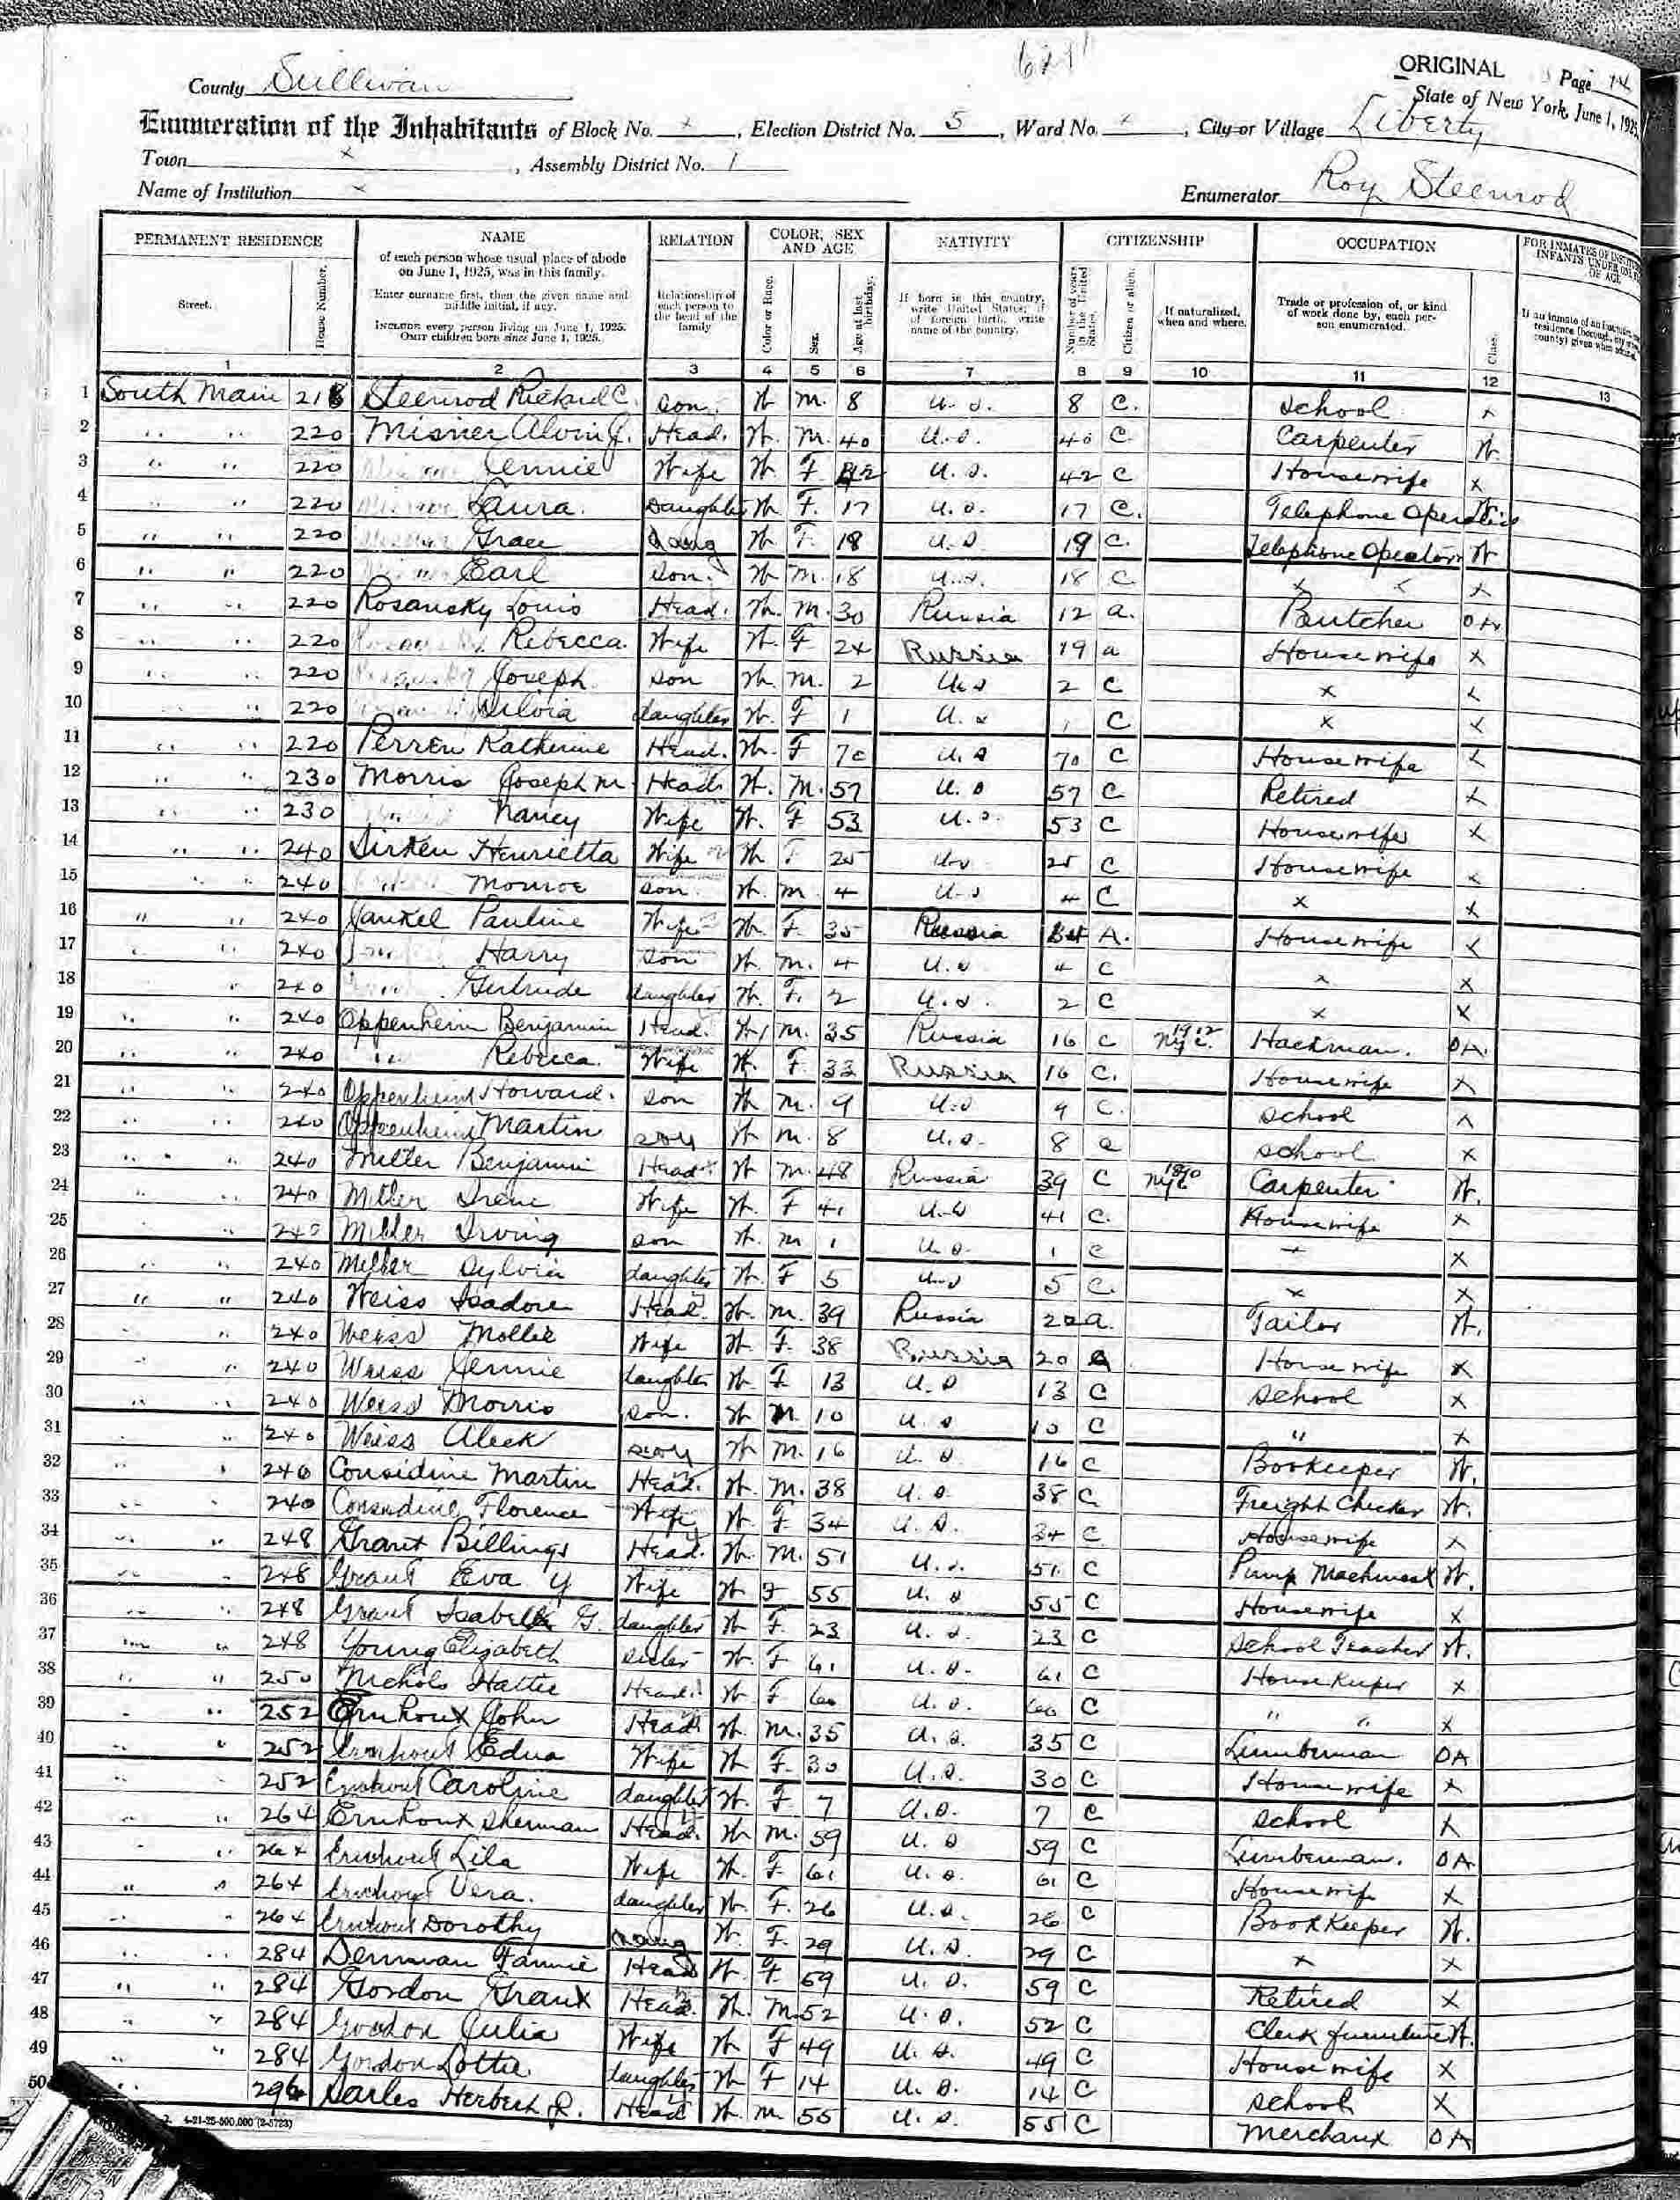 ORIGINAL Page 14
County Sullivan State of New York, June 1, 1925
Enumeration of the Inhabitants of Block No. x, Election District No. 5, Ward No. x, City or Village Liberty
Town x, Assembly District No. 1
Name of Institution x Enumerator Roy Steenrod
PERMANENT RESIDENCE NAME RELATION COLOR, SEX AND AGE NATIVITY CITIZENSHIP OCCUPATION
Street. House Number. of each person whose usual place of abode on June 1, 1925, was in this family. Enter surname first, then the given name and middle initial, if any. INCLUDE every person living on June 1, 1925. OMIT children born since June 1, 1925. Relationship of each person to the head of the family Color or Race. Sex. Age at last birthday. If born in this country, write United States; if of foreign birth, write name of the country. Number of years in the United States. Citizen or alien. If naturalized, when and where. Trade or profession of, or kind of work done by, each person enumerated. Class.
1 2 3 4 5 6 7 8 9 10 11 12 13
1 South Main 218 Steenrod Richard C. Son. W m. 8 U. S. 8 C. School x
2 " " 220 Misner Alvin J. Head. W. m. 40 U.S. 40 C Carpenter W.
3 " " 220 Jennie Wife W. F 42 U.S. 42 C Housewife x
4 " " 220 Laura. Daughter W F. 17 U.S. 17 C. Telephone Operator W
5 " " 220 Grace Daug W F. U.S 19 C. Telephone Operator W
6 " " 220 Earl Son. W m. 18 U.S. 18 C x x x
7 " " 220 Rosansky Louis Head. W. m. 30 Russia 12 a. Butcher OA
8 " " 220 Rebecca. Wife W. F 24 Russia 19 a Housewife x
9 " " 220 Joseph son W. m. 2 U.S 2 C x x
10 " " 220 Silvia daughter W. F 1 U.S 1 C x x
11 " " 220 Perren Katherine Head. W. F 70 U.S 70 C Housewife x
12 " " 230 Morris Joseph M. Head W. M. 57 U.S 57 C Retired x
13 " " 230 Nancy Wife W. F 53 U.S. 53 C Housewife x
14 " " 240 Henrietta Wife W F 25 U.S 25 C Housewife x
15 " " 240 Monroe son W. m. 4 U.S 4 C x x
16 " " 240 Pauline Wife W. F. 35 Russia A. Housewife x
17 " " 240 Harry son W. m. 4 U.S 4 C x x
18 " " 240 Gertrude daughter W. F. 2 U.S. 2 C x x
19 " " 240 Oppenheim Benjamin Head. W m. 35 Russia 16 C 1912 NYC. Hackman. OA.
20 " " 240 " Rebecca. Wife W. F. 33 Russia 16 C. Housewife x
21 " " 240 Oppenheim Howard. son W m. 9 U.S 9 C. school x
22 " " 240 Oppenheim Martin son W m. 8 U.S. 8 C school x
23 " " 240 Miller Benjamin Head W m. 48 Russia 39 C 1890 NYC Carpenter W.
24 " " 240 Miller Irene Wife W. F 41 U.S 41 C. Housewife x
25 " " 240 Miller Irving son W. m 1 U.S. 1 C x x
26 " " 240 Miller Sylvia daughter W. F 5 U.S 5 C. x x
27 " " 240 Weiss Isadore Head. W. m. 39 Russia 20 a. Tailor W.
28 " " 240 Weiss Mollie Wife W. F. 38 Russia 20 a Housewife x
29 " " 240 Weiss Jennie daughter W. F. 13 U.S 13 C School x
30 " " 240 Weiss Morris son. W M. 10 U.S 10 C " x
31 " " 240 Weiss Aleck son W m. 16 U.S. 16 C Bookeeper W.
32 " " 240 Considine Martin Head. W. m. 38 U.S. 38 C Freight Checker W.
33 " " 240 Considine Florence Wife W. F. 34 U.S. 34 C Housewife x
34 " " 248 Grant Billings Head. W. M. 51 U.S. 51 C Pump Machinest W.
35 " " 248 Grant Eva Y Wife W F 55 U.S 55 C Housewife x
36 " " 248 Grant Isabell G. daughter W F. 23 U.S. 23 C School Teacher W.
37 " " 248 Young Elizabeth sister W. F 61 U.S. 61 C House Keeper x
38 " " 250 Nichols Hattie Head. W F 60 U.S. 60 C " " x
39 " " 252 Ernhout John Head W. m. 35 U.S. 35 C Lumberman OA
40 " " 252 Ernhout Edna Wife W F. 30 U.S. 30 C Housewife x
41 " " 252 Ernhout Caroline daughter W. F 7 U.S. 7 C school x
42 " " 264 Ernhout Sherman Head. W m. 59 U.S 59 C Lumberman. OA
43 " " 264 Ernhout Lila Wife W. F 61 U.S. 61 C Housewife x
44 " " 264 Ernhout Vera. daughter W. F. 26 U.S. 26 C BookKeeper W.
45 " " 264 Ernhout Dorothy Daug W. F. 29 U.S. 29 C x x
46 " " 284 Fannie Head W. F. U.S. 59 C Retired x
47 " " 284 Gordon Grant Head. W. M 52 U.S. 52 C Clerk furniture W.
48 " " 284 Gordon Julia Wife W F 49 U.S. 49 C Housewife x
49 " " 284 Gordon Lottie daughter W F 14 U.S. 14 C School x
50 " " 296 Sarles Herbert R. Head W. m. 55 U.S. 55 C Merchant OA
4-21-25-500,000 (2-5723)